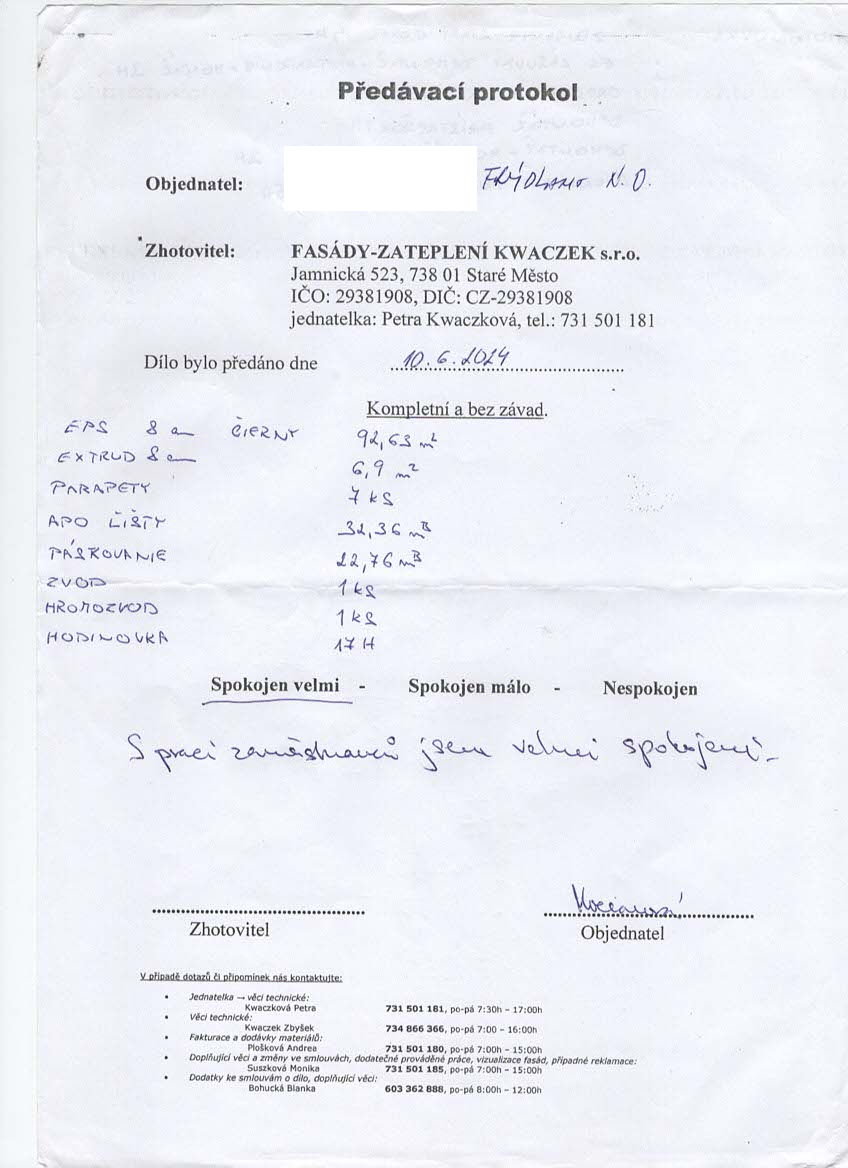 Předávací protokol
Objednatel: FRÝDLANT N. O.
Zhotovitel: FASÁDY-ZATEPLENÍ KWACZEK s.r.o.
Jamnická 523, 738 01 Staré Město
IČO: 29381908, DIČ: CZ-29381908
jednatelka: Petra Kwaczková, tel.: 731 501 181
Dílo bylo předáno dne 10.6.2024
Kompletní a bez závad.
EPS 8 cm ČIERNY 92,63 m²
EXTRUD 8 cm 6,9 m²
PARAPETY 7 ks
APO LIŠTY 32,36 mB
PÁSKOVANIE 22,76 mB
ZVOD 1 ks
HROMOZVOD 1 ks
HODINOVKA 17 H
Spokojen velmi - Spokojen málo - Nespokojen
S prací zaměstnanců jsem velmi spokojení.
Zhotovitel Objednatel
V případě dotazů či připomínek nás kontaktujte:
• Jednatelka → věci technické:
Kwaczková Petra 731 501 181, po-pá 7:30h – 17:00h
• Věci technické:
Kwaczek Zbyšek 734 866 366, po-pá 7:00 – 16:00h
• Fakturace a dodávky materiálů:
Plošková Andrea 731 501 180, po-pá 7:00h – 15:00h
• Doplňující věci a změny ve smlouvách, dodatečné prováděné práce, vizualizace fasád, případné reklamace:
Suszková Monika 731 501 185, po-pá 7:00h – 15:00h
• Dodatky ke smlouvám o dílo, doplňující věci:
Bohucká Blanka 603 362 888, po-pá 8:00h – 12:00h